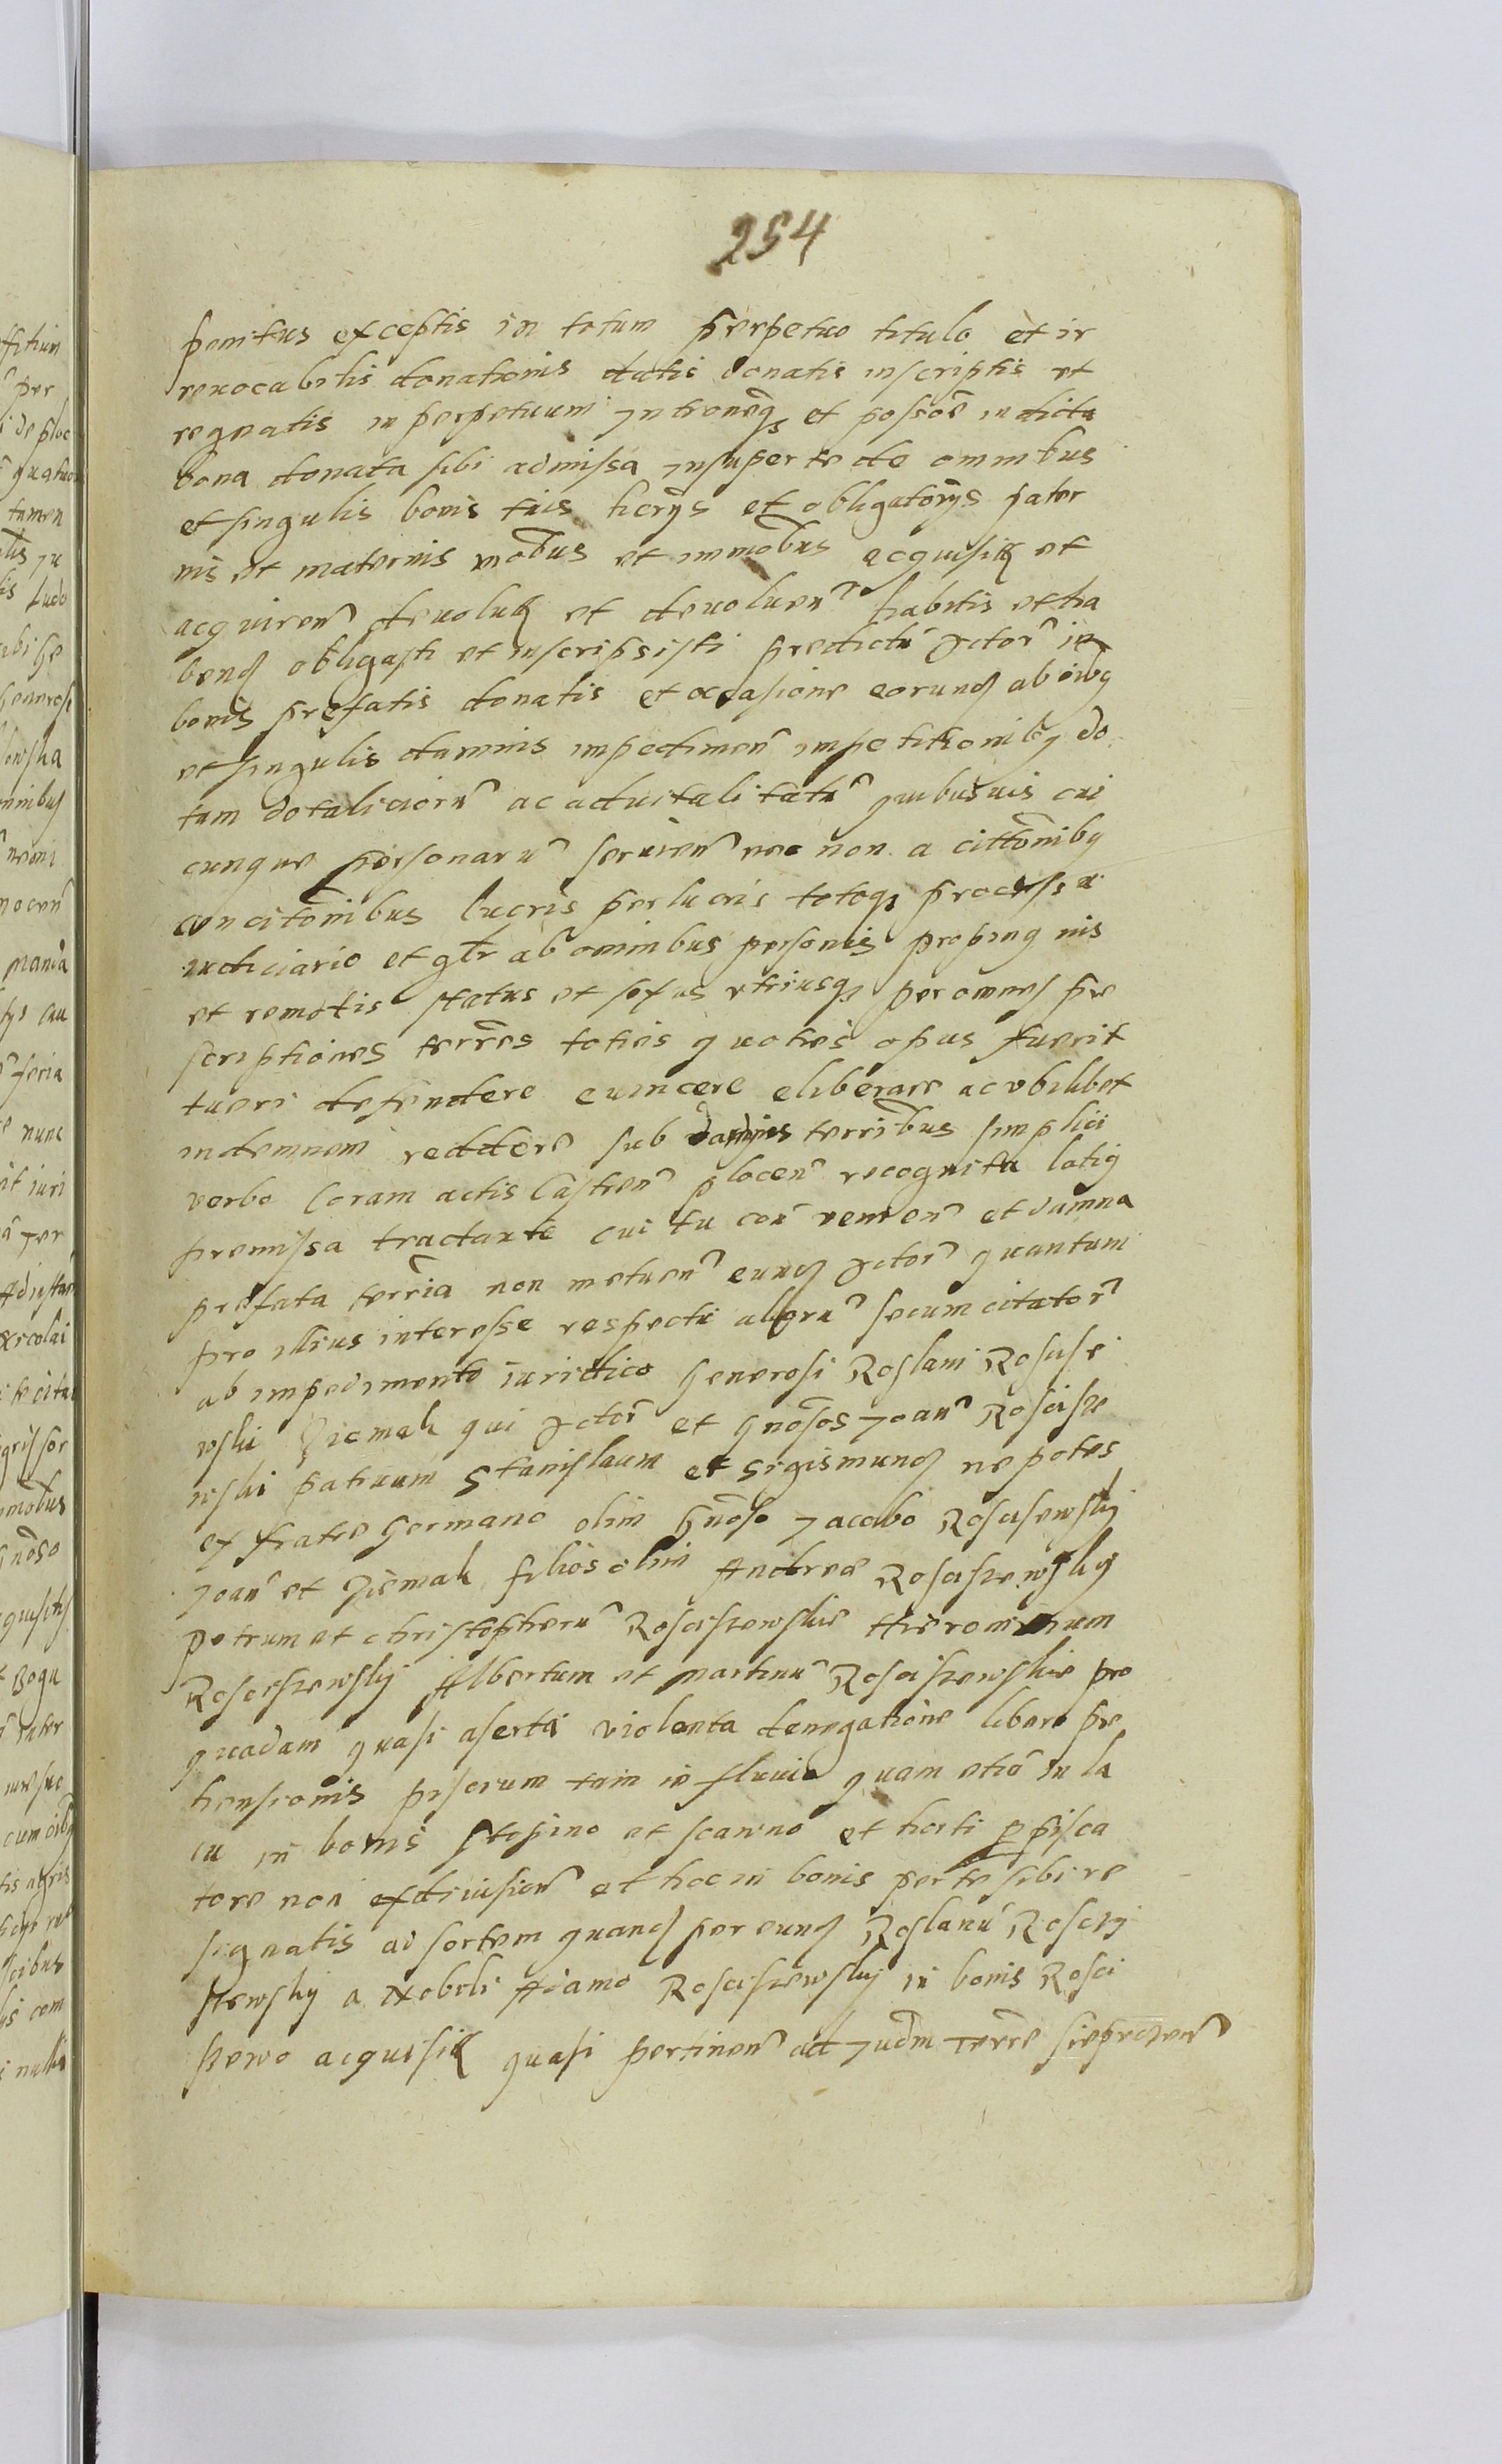 254
penitus exceptis in totum perpetuo titulo et ir
reuocabilis donationis datis donatis inscriptis et
regnatis in perpetuum Intromq3 et possoē in dicta
bona donata sibi admissa Insuper te de omnibus
et singulis bonis tuis hcrijs et obligatorijs pater
nis et maternis mobus et immobus acquisit et
acquiren deuolut et deuoluen habitis et ha
bend obligasti et inscripsisti predictū Actor in
bonis prefatis donatis et occasione eorund ab oibq
et singulis damnis impedimen impetitionibq do
tum dotaliciorū ac aduitalitatū quibusuis cui
cunque personarū seruien nec non a cittōnibq
concitōnibus lucris perlucris totoq3 processu
iudiciario et gltr ab omnibus personis propinq uis
et remotis status et sexus vtriusq3 per omnes pre
scriptiones terrēs toties quoties opus fuerit
tueri defendere euincere eliberare ac vbilibet
indemnem reddere sub damnis terribus simplici
verbo Coram actis Castren plocen recognita latiq
premissa tractante cui tu con venien et damna
prefata terrīa non metuen eund Actor quantum
pro illius interesse respectu aliorū secum citator
ab impedimento iuridico Generosi Roslani Roscisze
wski Ziemak qui Actor et Gnosos Joan Roscisze
wski patruum Stanislaum et Sigismund nepotes
ex fratre Germano olim Gnoso Jacobo Roscisewskij
Joan et Ziemak filios olim Andreae Rosciszewskij
petrum et christopherū Rosciszewskie Hieronimum
Rosciszewskij Albertum et Martinū Rosciszewskie pro
quadam quasi aserta violenta denegatione libere pre
hensionis piscrum tam in fluuio quam etiā in la
cu in bonis Stepino et scawno et horti p pisca
tore non exdiuision et hoc in bonis per te sibi re
signatis ad sortem quand per eund Roslanū Roscij
szewskij a Nobili Adamo Rosciszewskij in bonis Rosci
szewo acquisit quasi pertinen ad Judm Terre sieprczen